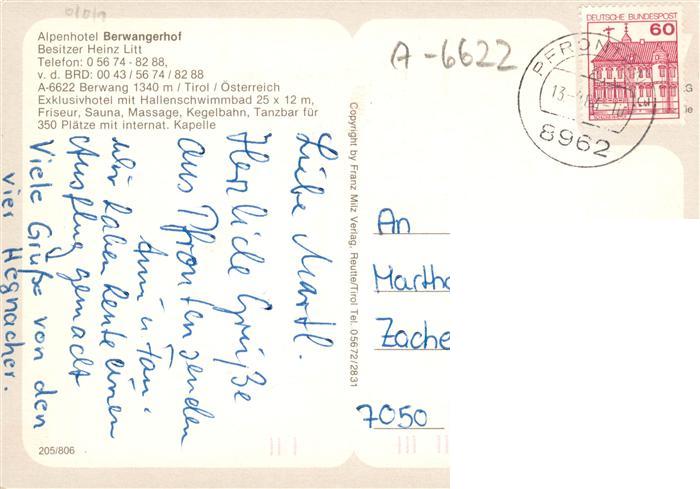 Alpenhotel Berwangerhof
Besitzer Heinz Litt
Telefon: 0 56 74 - 82 88,
v. d. BRD: 00 43 / 56 74 / 82 88
A-6622 Berwang 1340 m / Tirol / Österreich
Exklusivhotel mit Hallenschwimmbad 25 x 12 m,
Friseur, Sauna, Massage, Kegelbahn, Tanzbar für
350 Plätze mit internat. Kapelle
A-6622
DEUTSCHE BUNDESPOST
60
PFRONT
8962
Liebe Martl.
Herzliche Grüße
aus Pfronten senden
wir haben heute einen
Ausflug gemacht
Viele Grüße von den
vier Hegnacher.
Copyright by Franz Milz Verlag, Reutte/Tirol Tel. 05672/2831
An
Martha
Zache
7050
205/806